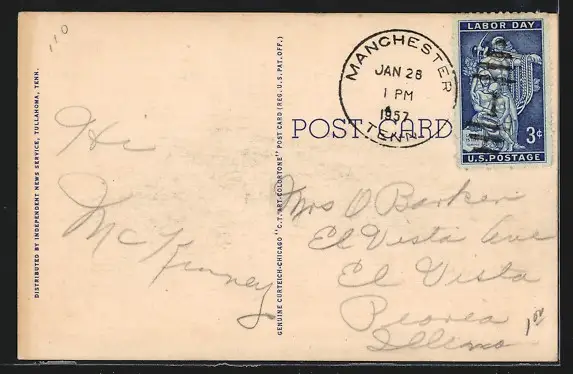 110
Hi
McKinney
DISTRIBUTED BY INDEPENDENT NEWS SERVICE, TULLAHOMA, TENN.
GENUINE CURTEICH-CHICAGO "C.T. ART-COLORTONE" POST CARD (REG. U.S. PAT. OFF.)
MANCHESTER
JAN 26
1 PM
1957
TENN.
LABOR DAY
3¢
U.S. POSTAGE
POST CARD
Mrs O Barker
El Vista Ave
El Vista
Peoria
Illinois
1.00